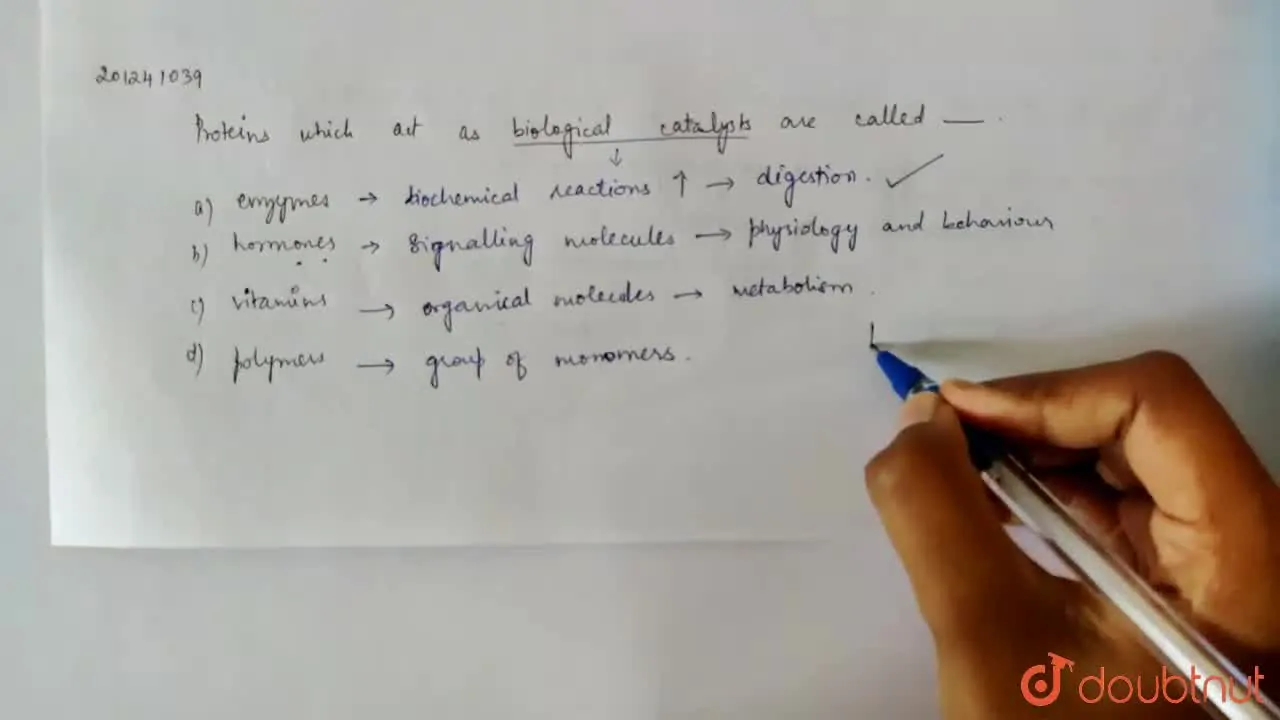 201241039
Proteins which act as biological catalysts are called __.
↓
a) enzymes → biochemical reactions ↑ → digestion. ✓
b) hormones → signalling molecules → physiology and behaviour
c) vitamins → organical molecules → metabolism.
d) polymers → group of monomers.
doubtnut